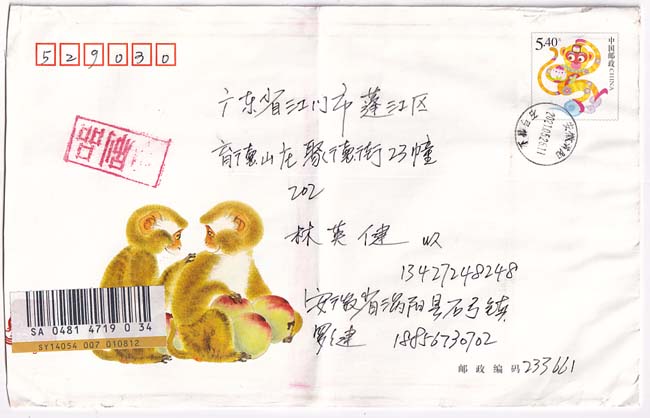 529030
5.40元
中国邮政 CHINA
广东省江门市蓬江区
育德山庄聚德街23幢
202
林英健 收
13427248248
安徽省涡阳县石弓镇
罗建 18856730702
邮政编码 233661
SA 0481 4719 0 34
SY14054 007 010812